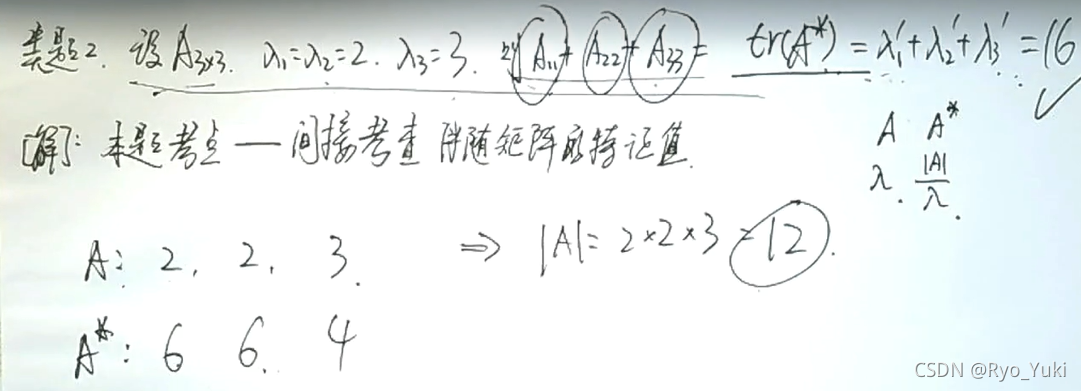 类题2. 设A₃ₓ₃. λ₁=λ₂=2. λ₃=3. 则A₁₁+A₂₂+A₃₃= tr(A*)=λ₁'+λ₂'+λ₃'=16 ✓
[解]: 本题考点——间接考查 伴随矩阵的特征值.
A A*
λ. |A|/λ.
A: 2, 2, 3. ⇒ |A|=2×2×3=12.
A*: 6 6. 4
CSDN @Ryo_Yuki